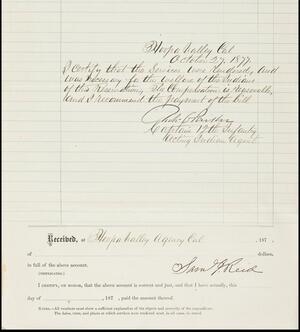 Hoopa Valley Cal
October 27, 1877.
I certify that the services were rendered, and
was necessary for the welfare of the Indians
of this Reservation, the compensation is reasonable,
and I recommend the payment of the bill
Captain 12th Infantry
Acting Indian Agent
Received, at Hoopa Valley Agency Cal 187 .
of dollars,
in full of the above account.
(DUPLICATES.) Sam F Reid
I CERTIFY, ON HONOR, that the above account is correct and just, and that I have actually, this
day of , 187 , paid the amount thereof.
NOTE.—All vouchers must show a sufficient explanation of the objects and necessity of the expenditure.
The dates, rates, and places at which services were rendered must, in all cases, be stated.